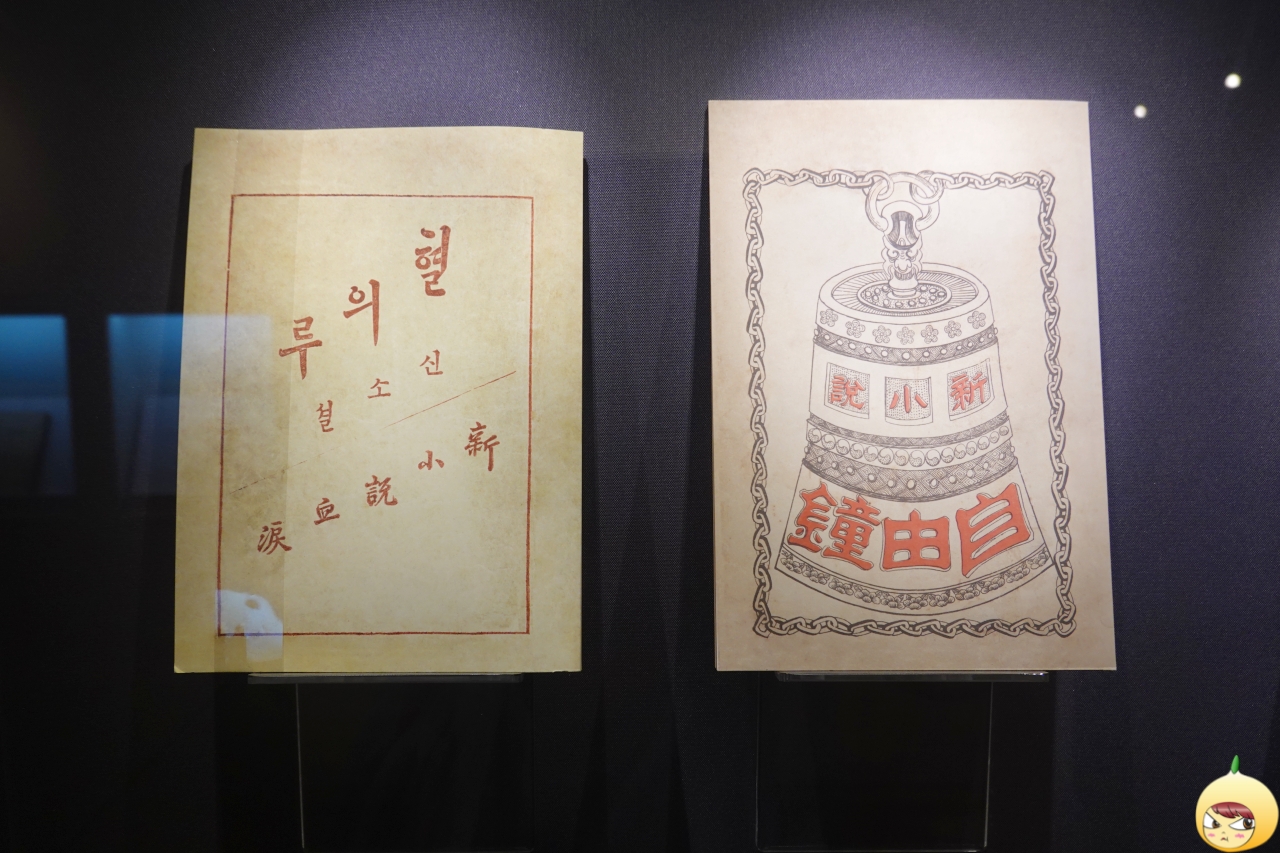 혈의루
신소설
新小說
血淚
新小說
自由鐘